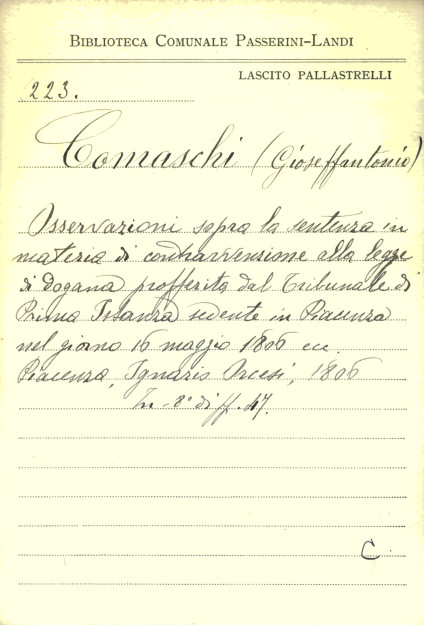 BIBLIOTECA COMUNALE PASSERINI-LANDI
LASCITO PALLASTRELLI
223.
Comaschi (Gioseffantonio)
Osservazioni sopra la sentenza in
materia di contravvenzione alla legge
di Dogana profferita dal Tribunale di
Prima Istanza sedente in Piacenza
nel giorno 16 maggio 1806 ecc.
Piacenza, Ignazio Orcesi, 1806
In-8° di ff. 47.
C